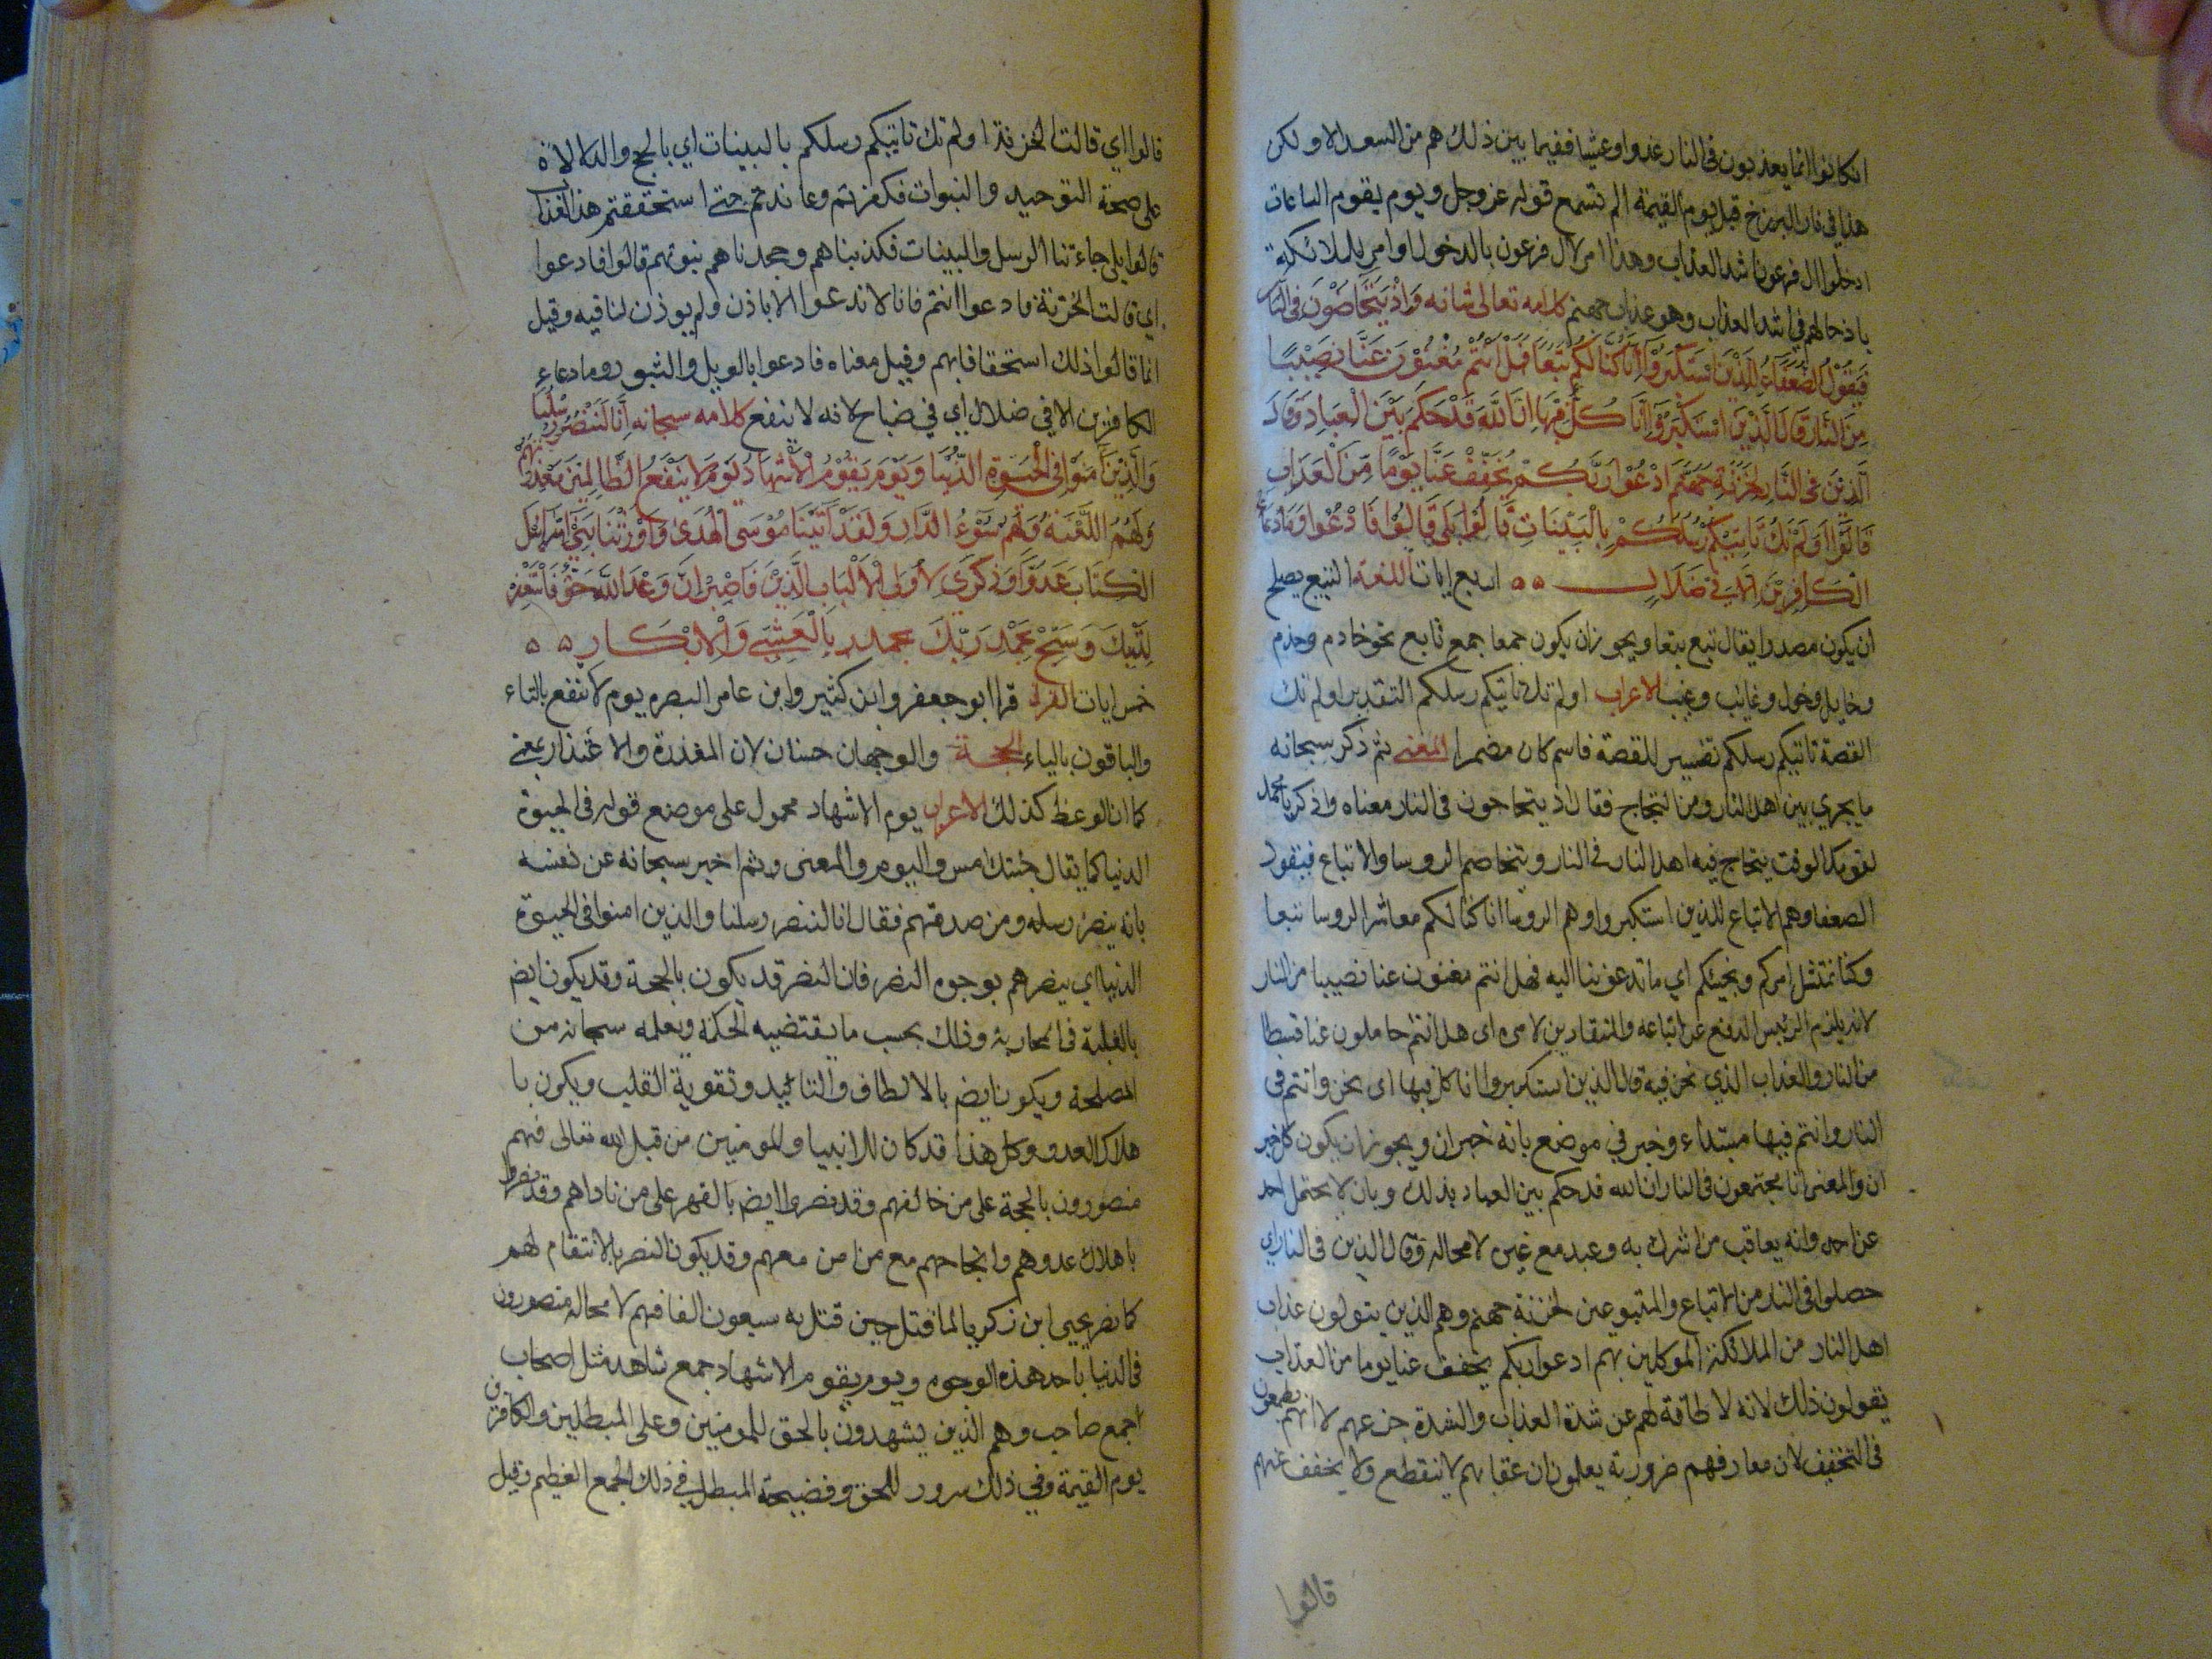 ان كانوا انما يعذبون في النار غدوا وعشيا ففيما بين ذلك هم من السعدا لا ولكن
هذا في نار البرزخ قبل يوم القيمة الم تسمع قوله عز وجل ويوم يقوم الساعات
ادخلوا ال فرعون اشد العذاب وهذا امر لال فرعون بالدخول او امر للملائكة
باذخالهم في اشد العذاب وهو عذاب جهنم كلامه تعالى شانه وَاِذْ يَتَحَاجُّونَ فِي النَّارِ
فَيَقُوْلُ الضُّعَفَاءُ لِلَّذِيْنَ اسْتَكْبَرُوْا اِنَّا كُنَّا لَكُمْ تَبَعًا فَهَلْ اَنْتُمْ مُغْنُوْنَ عَنَّا نَصِيْبًا
مِنَ النَّارِ قَالَ الَّذِيْنَ اسْتَكْبَرُوْا اِنَّا كُلٌّ فِيْهَا اِنَّ اللّٰهَ قَدْ حَكَمَ بَيْنَ الْعِبَادِ وَقَالَ
الَّذِيْنَ فِي النَّارِ لِخَزَنَةِ جَهَنَّمَ ادْعُوْا رَبَّكُمْ يُخَفِّفْ عَنَّا يَوْمًا مِّنَ الْعَذَابِ
قَالُوْا اَوَلَمْ تَكُ تَاْتِيْكُمْ رُسُلُكُمْ بِالْبَيِّنَاتِ قَالُوْا بَلٰى قَالُوْا فَادْعُوْا وَمَا دُعَاءُ
الْكَافِرِيْنَ اِلَّا فِيْ ضَلَالٍ ٥٥ اربع ايات اللغة التبع يصلح
ان يكون مصدرا يقال تبع تبعا ويجوز ان يكون جمعا جمع تابع نحو خادم وخدم
وخايل وخول وغايب وغيب الاعراب اولم تك تاتيكم رسلكم التقدير اولم تك
القصة تاتيكم رسلكم تفسير للقصة فاسم كان مضمر المعنى ثم ذكر سبحانه
ما يجري بين اهل النار ومن التحاج فقال اذ يتحاجون في النار معناه واذكر يا محمد
لقومك الوقت يتحاج فيه اهل النار في النار ويتخاصم الروسا والاتباع فيقول
الضعفا وهم الاتباع للذين استكبروا وهم الروسا انا كنا لكم معاشر الروسا تبعا
وكنا نمتثل امركم ونجيبكم اي ما تدعوننا اليه فهل انتم مغنون عنا نصيبا من النار
لانه يلزم الرئيس الدفع عن اتباعه والمنقادين لامره اى هل انتم حاملون عنا قسطا
من النار والعذاب الذي نحن فيه قال الذين استكبروا انا كل فيها اى نحن وانتم في
النار وانتم فيها مبتداء وخبر في موضع بانه خبر ان ويجوز ان يكون كل خبر
ان والمعنى انا مجتمعون في النار ان الله قد حكم بين العباد بذلك وبان لا يحتمل احد
عن احد وانه يعاقب من اشرك به وعبد مع غيره لا محالة وقال الذين في النار اي
حصلوا في النار من الاتباع والمتبوعين لخزنة جهنم وهم الذين يتولون عذاب
اهل النار من الملائكة الموكلين بهم ادعوا ربكم يخفف عنا يوما من العذاب
يقولون ذلك لانه لا طاقة لهم عن شدة العذاب والشدة جزعهم لا انهم يطمعون
في التخفيف لان معارفهم ضرورية يعلمون ان عقابهم لا ينقطع ولا يخفف عنهم
قالوا
قالوا اي قالت الخزنة اولم تك تاتيكم رسلكم بالبينات اي بالحجج والدلالاة
على صحة التوحيد والنبوات فكفرتم وعاندتم حتى استحققتم هذا العذاب
قالوا بلى جاءتنا الرسل والبينات فكذبناهم وجحدناهم نبوتهم قالوا فادعوا
اي قالت الخزنة فادعوا انتم فانا لا ندعوا الا باذن ولم يوذن لنا فيه وقيل
انما قالوا ذلك استخفافا بهم وقيل معناه فادعوا بالويل والثبور وما دعاء
الكافرين الا في ضلال اي في ضياح لانه لا ينفع كلامه سبحانه اِنَّا لَنَنْصُرُ رُسُلَنَا
وَالَّذِيْنَ اٰمَنُوْا فِي الْحَيٰوةِ الدُّنْيَا وَيَوْمَ يَقُوْمُ الْاَشْهَادُ يَوْمَ لَا يَنْفَعُ الظَّالِمِيْنَ مَعْذِرَتُهُمْ
وَلَهُمُ اللَّعْنَةُ وَلَهُمْ سُوْءُ الدَّارِ وَلَقَدْ اٰتَيْنَا مُوْسَى الْهُدٰى وَاَوْرَثْنَا بَنِيْ اِسْرَائِيْلَ
الْكِتَابَ هُدًى وَذِكْرٰى لِاُولِي الْاَلْبَابِ فَاصْبِرْ اِنَّ وَعْدَ اللّٰهِ حَقٌّ فَاسْتَغْفِرْ
لِذَنْبِكَ وَسَبِّحْ بِحَمْدِ رَبِّكَ بِالْعَشِيِّ وَالْاِبْكَارِ ٥٥
خمس ايات القراة قرا ابو جعفر وابن كثير وابن عامر البصره يوم لا تنفع بالتاء
والباقون بالياء الحجة والوجهان حسنان لان المعذرة والاعتذار بمعنى
كما ان الوعظ كذلك الاعراب يوم الاشهاد محمول على موضع قوله في الحيوة
الدنيا كما يقال جئتك امس واليوم والمعنى ثم اخبر سبحانه عن نفسه
بانه ينصر رسله ومن صدقهم فقال انا لننصر رسلنا والذين امنوا في الحيوة
الدنيا اي ينصرهم بوجوه النصر فان النصر قد يكون بالحجة وقد يكون ايض
بالغلبة في المحاربة وذلك بحسب ما يقتضيه الحكمة ويعلمه سبحانه من
المصلحة ويكون ايض بالالطاف والتائيد وتقوية القلب ويكون با
هلاك العدو وكل هذا قد كان للانبيا والمومنين من قبل الله تعالى فهم
منصورون بالحجة على من خالفهم وقد نصروا ايض بالقهر على من ناواهم وقد نصروا
باهلاك عدوهم وانجاحهم مع من امن معهم وقد يكون النصر بالانتقام لهم
كما نصر يحيى ابن زكريا لما قتل حين قتل به سبعون الفا فهم لا محالة منصورون
في الدنيا باحد هذه الوجوه ويوم يقوم الاشهاد جمع شاهد مثل اصحاب
اجمع صاحب وهم الذين يشهدون بالحق للمومنين وعلى المبطلين والكافرين
يوم القيمة وفي ذلك سرور للمحق وفضيحة المبطل في ذلك الجمع العظيم وقيل